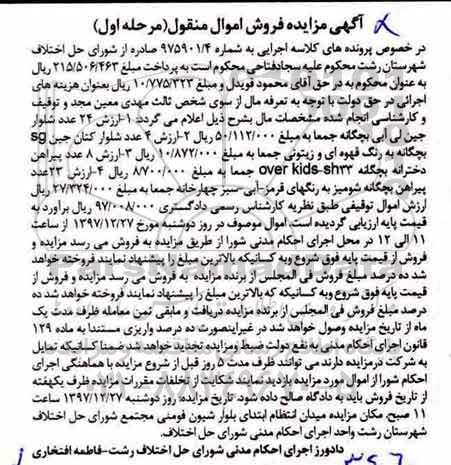 آگهی مزایده فروش اموال منقول(مرحله اول)
در خصوص پرونده های کلاسه اجرایی به شماره ۹۷۵۹۰۱/۴ صادره از شورای حل اختلاف
شهرستان رشت محکوم علیه سجادفتاحی محکوم است به پرداخت مبلغ ۲۱۵/۵۰۶/۴۶۳ ریال
به عنوان محکوم به در حق آقای محمود قویدل و مبلغ ۱۰/۷۷۵/۳۲۳ ریال بعنوان هزینه های
اجرائی در حق دولت با توجه به تعرفه مال از سوی شخص ثالث مهدی معین مجد و توقیف
و کارشناسی انجام شده مشخصات مال بشرح ذیل اعلام می گردد: ۱-ارزش ۲۴ عدد شلوار
جین لی آبی بچگانه جمعا به مبلغ ۵۰/۱۱۲/۰۰۰ ریال ۲-ارزش ۴ عدد شلوار کتان جین sg
بچگانه به رنگ قهوه ای و زیتونی جمعا به مبلغ ۱۰/۸۷۲/۰۰۰ ریال ۳-ارزش ۸ عدد پیراهن
دخترانه بچگانه over kids-sh۳۳ جمعا به مبلغ ۸۷۰۰/۰۰۰ ریال ۴-ارزش ۲۳عدد
پیراهن بچگانه شومیز به رنگهای قرمز-آبی-سبز چهارخانه جمعا به مبلغ ۲۷/۳۲۴/۰۰۰ ریال
ارزش اموال توقیفی طبق نظریه کارشناس رسمی دادگستری ۹۷/۰۰۸/۰۰۰ ریال برآورد به
قیمت پایه ارزیابی گردیده است، اموال موصوف در روز دوشنبه مورخ ۱۳۹۷/۱۲/۲۷ از ساعت
۱۱ الی ۱۲ در محل اجرای احکام مدنی شورا از طریق مزایده به فروش می رسد مزایده و
فروش از قیمت پایه فوق شروع وبه کسانیکه بالاترین مبلغ را پیشنهاد نمایند فروخته خواهد
شد ده درصد مبلغ فروش فی المجلس از برنده مزایده به فروش می رسد مزایده و فروش از
قیمت پایه فوق شروع وبه کسانیکه که بالاترین مبلغ را پیشنهاد نمایند فروخته خواهد شد ده
درصد مبلغ فروش فی المجلس از برنده مزایده دریافت و مابقی ثمن معامله ظرف مدت یک
ماه از تاریخ مزایده وصول خواهد شد در غیراینصورت ده درصد واریزی مستندا به ماده ۱۲۹
قانون اجرای احکام مدنی به نفع دولت ضبط ومزایده تجدید خواهد شد ضمنا کسانیکه تمایل
به شرکت درمزایده دارند می توانند ظرف مدت ۵ روز قبل از شروع مزایده با هماهنگی اجرای
احکام شورا از اموال مورد مزایده بازدید نمایند شکایت از تخلفات مقررات مزایده ظرف یکهفته
از تاریخ فروش باید به دادگاه صالح داده شود تاریخ مزایده: روز دوشنبه ۱۳۹۷/۱۲/۲۷ ساعت
۱۱ صبح، مکان مزایده میدان انتظام ابتدای بلوار شیون فومنی مجتمع شورای حل اختلاف
شهرستان رشت واحد اجرای احکام مدنی شورای حل اختلاف.
دادورز اجرای احکام مدنی شورای حل اختلاف رشت-فاطمه افتخاری